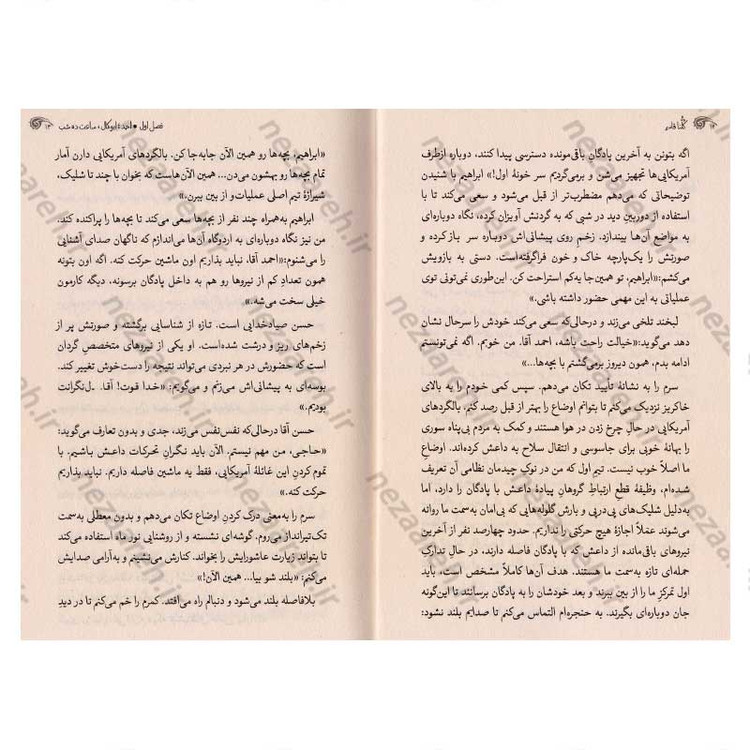 ۱۲
اگه بتونن به آخرین پادگان باقی‌مونده دسترسی پیدا کنند، دوباره ازطرف
آمریکایی‌ها تجهیز می‌شن و برمی‌گردیم سر خونهٔ اول!» ابراهیم با شنیدن
توضیحاتی که می‌دهم مضطرب‌تر از قبل می‌شود و سعی می‌کند تا با
استفاده از دوربینِ دید در شبی که به گردنش آویزان کرده، نگاه دوباره‌ای
به مواضع آن‌ها بیندازد. زخم روی پیشانی‌اش دوباره سر بازکرده و
صورتش را یک‌پارچه خاک و خون فراگرفته‌است. دستی به بازویش
می‌کشم:«ابراهیم، تو همین‌جا یه‌کم استراحت کن. این‌طوری نمی‌تونی توی
عملیاتی به این مهمی حضور داشته باشی.»
لبخند تلخی می‌زند و درحالی‌که سعی می‌کند خودش را سرحال نشان
دهد می‌گوید:«خیالت راحت باشه، احمد آقا. من خوبم. اگه نمی‌تونستم
ادامه بدم، همون دیروز برمی‌گشتم با بچه‌ها...»
سرم را به نشانهٔ تأیید تکان می‌دهم. سپس کمی خودم را به بالای
خاکریز نزدیک می‌کنم تا بتوانم اوضاع را بهتر از قبل رصد کنم. بالگردهای
آمریکایی در حالِ چرخ زدن در هوا هستند و کمک به مردم بی‌پناه سوری
را بهانهٔ خوبی برای جاسوسی و انتقال سلاح به داعش کرده‌اند. اوضاعِ
ما اصلاً خوب نیست. تیم اول که من در نوکِ چیدمان نظامی آن تعریف
شده‌ام، وظیفهٔ قطعِ ارتباطِ گروهانِ پیادهٔ داعش با پادگان را دارد، اما
به‌دلیل شلیک‌های پی‌درپی و بارشِ گلوله‌هایی که بی‌امان به‌سمت ما روانه
می‌شوند عملاً اجازهٔ هیچ حرکتی را نداریم. حدود چهارصد نفر از آخرین
نیروهای باقی‌مانده از داعش که با پادگان فاصله دارند، در حالِ تدارک
حمله‌ای تازه به‌سمت ما هستند. هدف آن‌ها کاملاً مشخص است، باید
اول تمرکز ما را از بین ببرند و بعد خودشان را به پادگان برسانند تا این‌گونه
جان دوباره‌ای بگیرند. به حنجره‌ام التماس می‌کنم تا صدایم بلند نشود:
فصل اول • احمد؛ ابوکمال، ساعت ده شب ۱۳
«ابراهیم، بچه‌ها رو همین الآن جابه‌جا کن. بالگردهای آمریکایی دارن آمار
تمام بچه‌ها رو بهشون می‌دن... همین الآن‌هاست که بخوان با چند تا شلیک،
شیرازهٔ تیم اصلی عملیات‌و از بین ببرن.»
ابراهیم به‌همراه چند نفر از بچه‌ها سعی می‌کند تا بچه‌ها را پراکنده کند.
من نیز نگاه دوباره‌ای به اردوگاه آن‌ها می‌اندازم که ناگهان صدای آشنایی
را می‌شنوم:«احمد آقا، نباید بذاریم اون ماشین حرکت کنه. اگه اون بتونه
همون تعدادِ کم از نیروها رو هم به داخل پادگان برسونه، دیگه کارمون
خیلی سخت می‌شه.»
حسن صیادخدایی است. تازه از شناسایی برگشته و صورتش پر از
زخم‌های ریز و درشت شده‌است. او یکی از نیروهای متخصصِ گردان
است که حضورش در هر نبردی می‌تواند نتیجه را دست‌خوش تغییر کند.
بوسه‌ای به پیشانی‌اش می‌زنم و می‌گویم: «خدا قوت! آقا. دل‌نگرانت
بودیم.»
حسن آقا درحالی‌که نفس‌نفس می‌زند، جدی و بدون تعارف می‌گوید:
«حاجی، من مهم نیستم. الآن باید نگرانِ تحرکات داعش باشیم. با
تموم کردنِ این غائلهٔ آمریکایی، فقط یه ماشین فاصله داریم. نباید بذاریم
حرکت کنه.»
سرم را به‌معنی درک کردنِ اوضاع تکان می‌دهم و بدون معطلی به‌سمت
تک‌تیرانداز می‌روم. گوشه‌ای نشسته و از روشنایی نور ماه استفاده می‌کند
تا بتواند زیارت عاشورایش را بخواند. کنارش می‌نشینم و به‌آرامی صدایش
می‌کنم: «بلند شو بیا... همین الآن!»
بلافاصله بلند می‌شود و دنبالم راه می‌افتد. کمرم را خم می‌کنم تا در دیدِ
nezaareh.ir